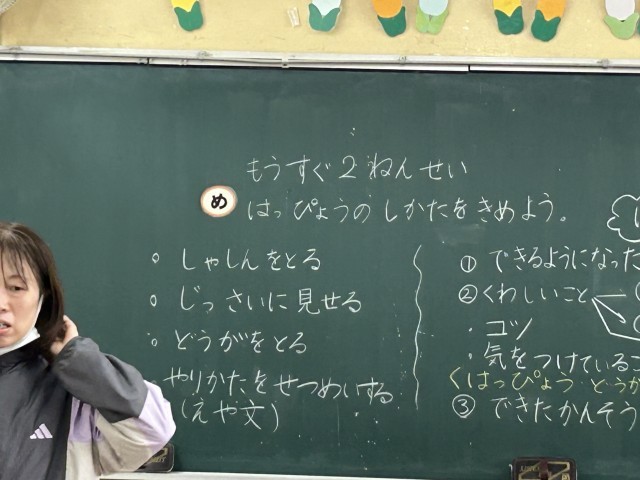 もうすぐ2ねんせい
め はっぴょうのしかたをきめよう。
○ しゃしんをとる
○ じっさいに見せる
○ どうがをとる
やりかたをせつめいする
(えや文)
① できるようになった
② くわしいこと
・コツ
・気をつけている
くはっぴょう どうが
③ できたかんそう